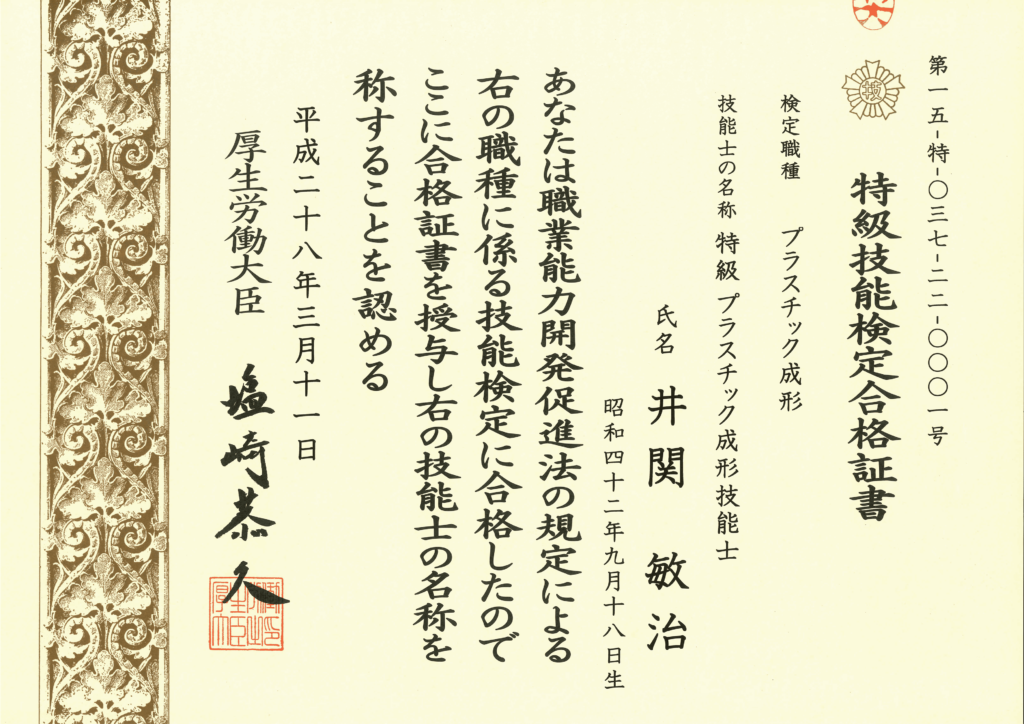 第一五-特-〇三七-二二-〇〇〇一号
技
特級技能検定合格証書
検定職種 プラスチック成形
技能士の名称 特級 プラスチック成形技能士
氏名 井関 敏治
昭和四十二年九月十八日生
あなたは職業能力開発促進法の規定による
右の職種に係る技能検定に合格したので
ここに合格証書を授与し右の技能士の名称を
称することを認める
平成二十八年三月十一日
厚生労働大臣 塩崎恭久